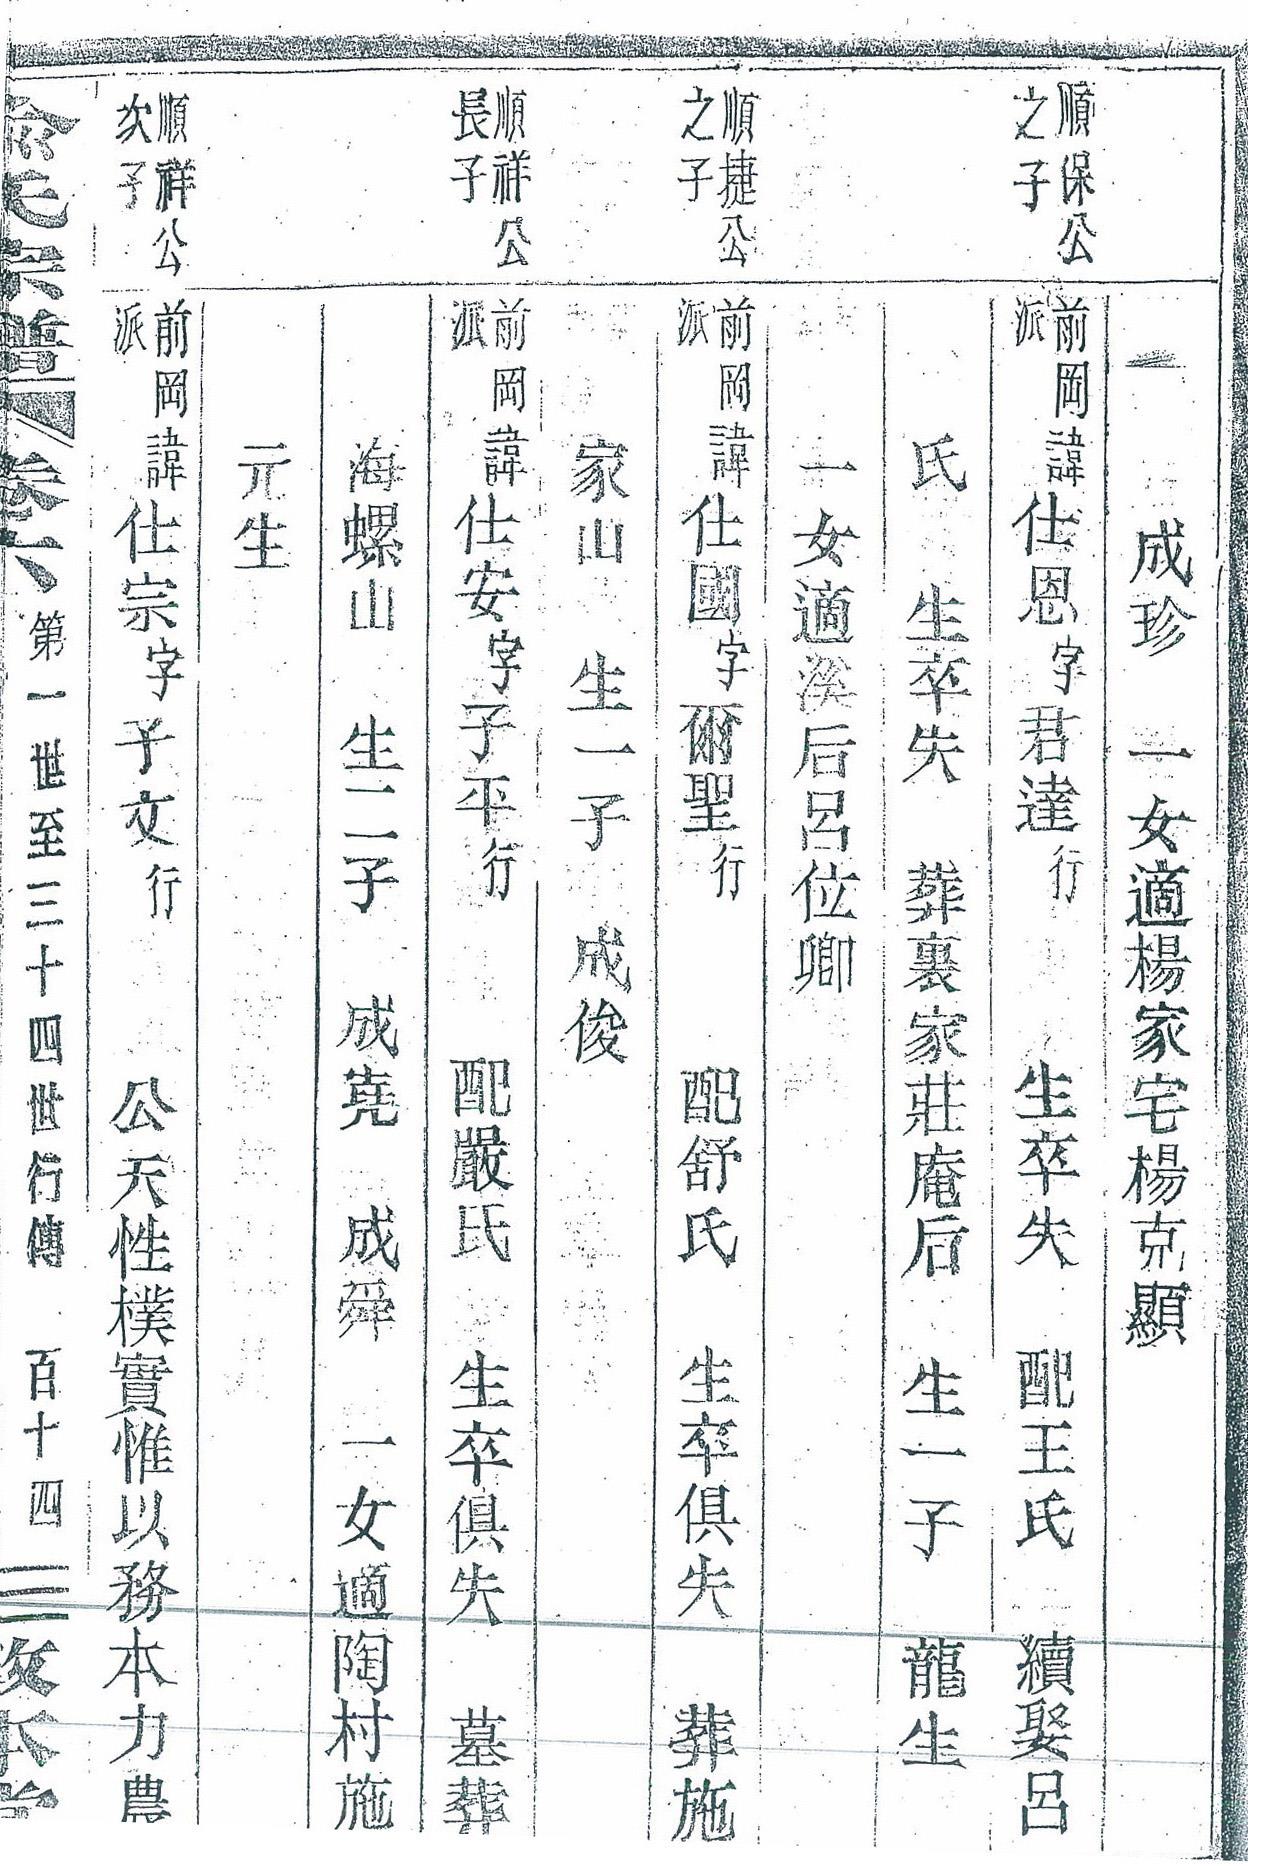 成珍 一女適楊家宅楊克顯
順保公
之子
前岡
派
諱仕恩字君達行 生卒失 配王氏 續娶呂
氏 生卒失 葬裏家莊庵后 生一子 龍生
一女適溪后呂位卿
順捷公
之子
前岡
派
諱仕國字爾聖行 配舒氏 生卒俱失 葬施
家山 生一子 成俊
順祥公
長子
前岡
派
諱仕安字子平行 配嚴氏 生卒俱失 墓葬
海螺山 生二子 成堯 成舜 一女適陶村施
元生
順祥公
次子
前岡
派
諱仕宗字子文行 公天性樸實惟以務本力農
氏宗譜 卷六 第一世至三十四世行傳 百十四